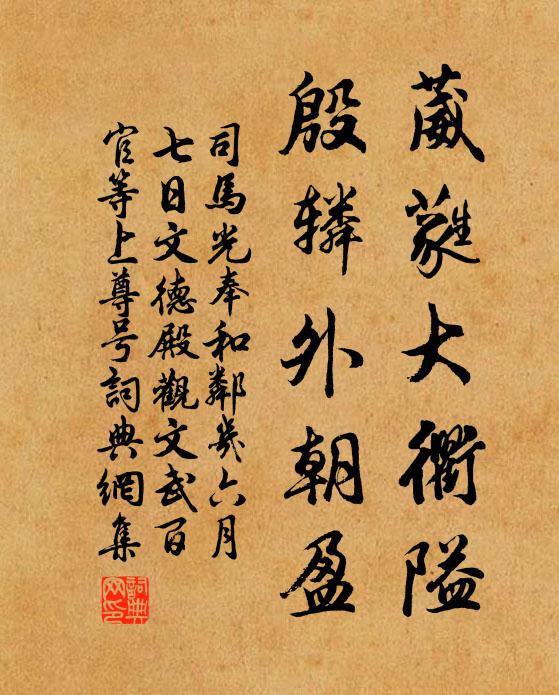 葳蕤大衢隘
殷轔外朝盈
司馬光奉和鄰幾六月
七日文德殿觀文武百
官等上尊号詞典網集
詞典網印